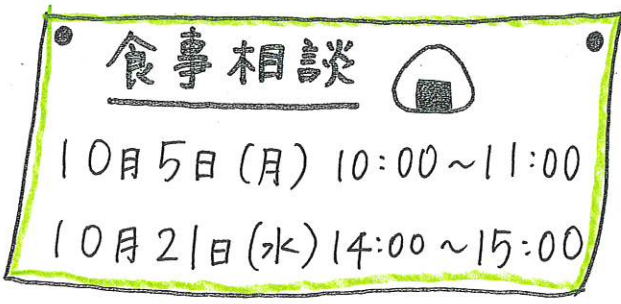 食事相談
10月5日(月) 10:00~11:00
10月21日(水) 14:00~15:00